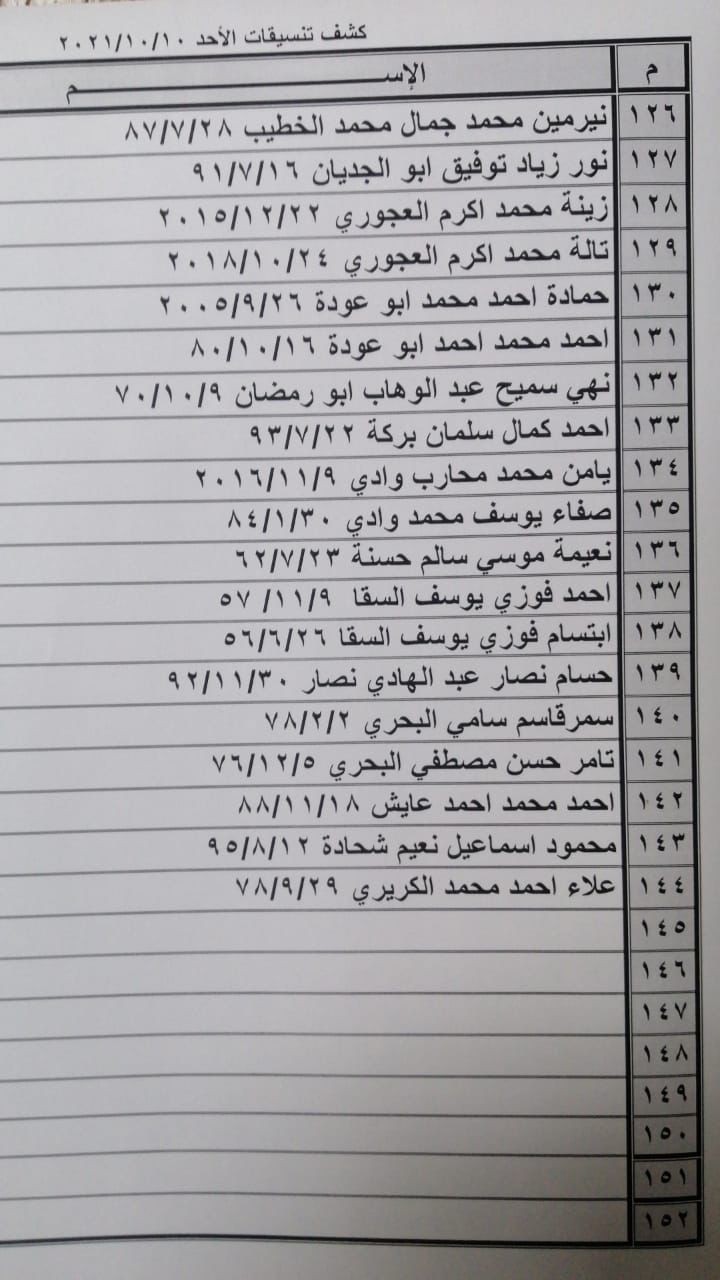 كشف تنسيقات الأحد ٢٠٢١/١٠/١٠
م الإســـــــــــــــــم
١٢٦ نيرمين محمد جمال محمد الخطيب ٨٧/٧/٢٨
١٢٧ نور زياد توفيق ابو الجديان ٩١/٧/١٦
١٢٨ زينة محمد اكرم العجوري ٢٠١٥/١٢/٢٢
١٢٩ تالة محمد اكرم العجوري ٢٠١٨/١٠/٢٤
١٣٠ حمادة احمد محمد ابو عودة ٢٠٠٥/٩/٢٦
١٣١ احمد محمد احمد ابو عودة ٨٠/١٠/١٦
١٣٢ نهي سميح عبد الوهاب ابو رمضان ٧٠/١٠/٩
١٣٣ احمد كمال سلمان بركة ٩٣/٧/٢٢
١٣٤ يامن محمد محارب وادي ٢٠١٦/١١/٩
١٣٥ صفاء يوسف محمد وادي ٨٤/١/٣٠
١٣٦ نعيمة موسي سالم حسنة ٦٢/٧/٢٣
١٣٧ احمد فوزي يوسف السقا ٥٧ /١١/٩
١٣٨ ابتسام فوزي يوسف السقا ٥٦/٦/٢٦
١٣٩ حسام نصار عبد الهادي نصار ٩٢/١١/٣٠
١٤٠ سمرقاسم سامي البحري ٧٨/٢/٢
١٤١ تامر حسن مصطفي البحري ٧٦/١٢/٥
١٤٢ احمد محمد احمد عايش ٨٨/١١/١٨
١٤٣ محمود اسماعيل نعيم شحادة ٩٥/٨/١٢
١٤٤ علاء احمد محمد الكريري ٧٨/٩/٢٩
١٤٥
١٤٦
١٤٧
١٤٨
١٤٩
١٥٠
١٥١
١٥٢